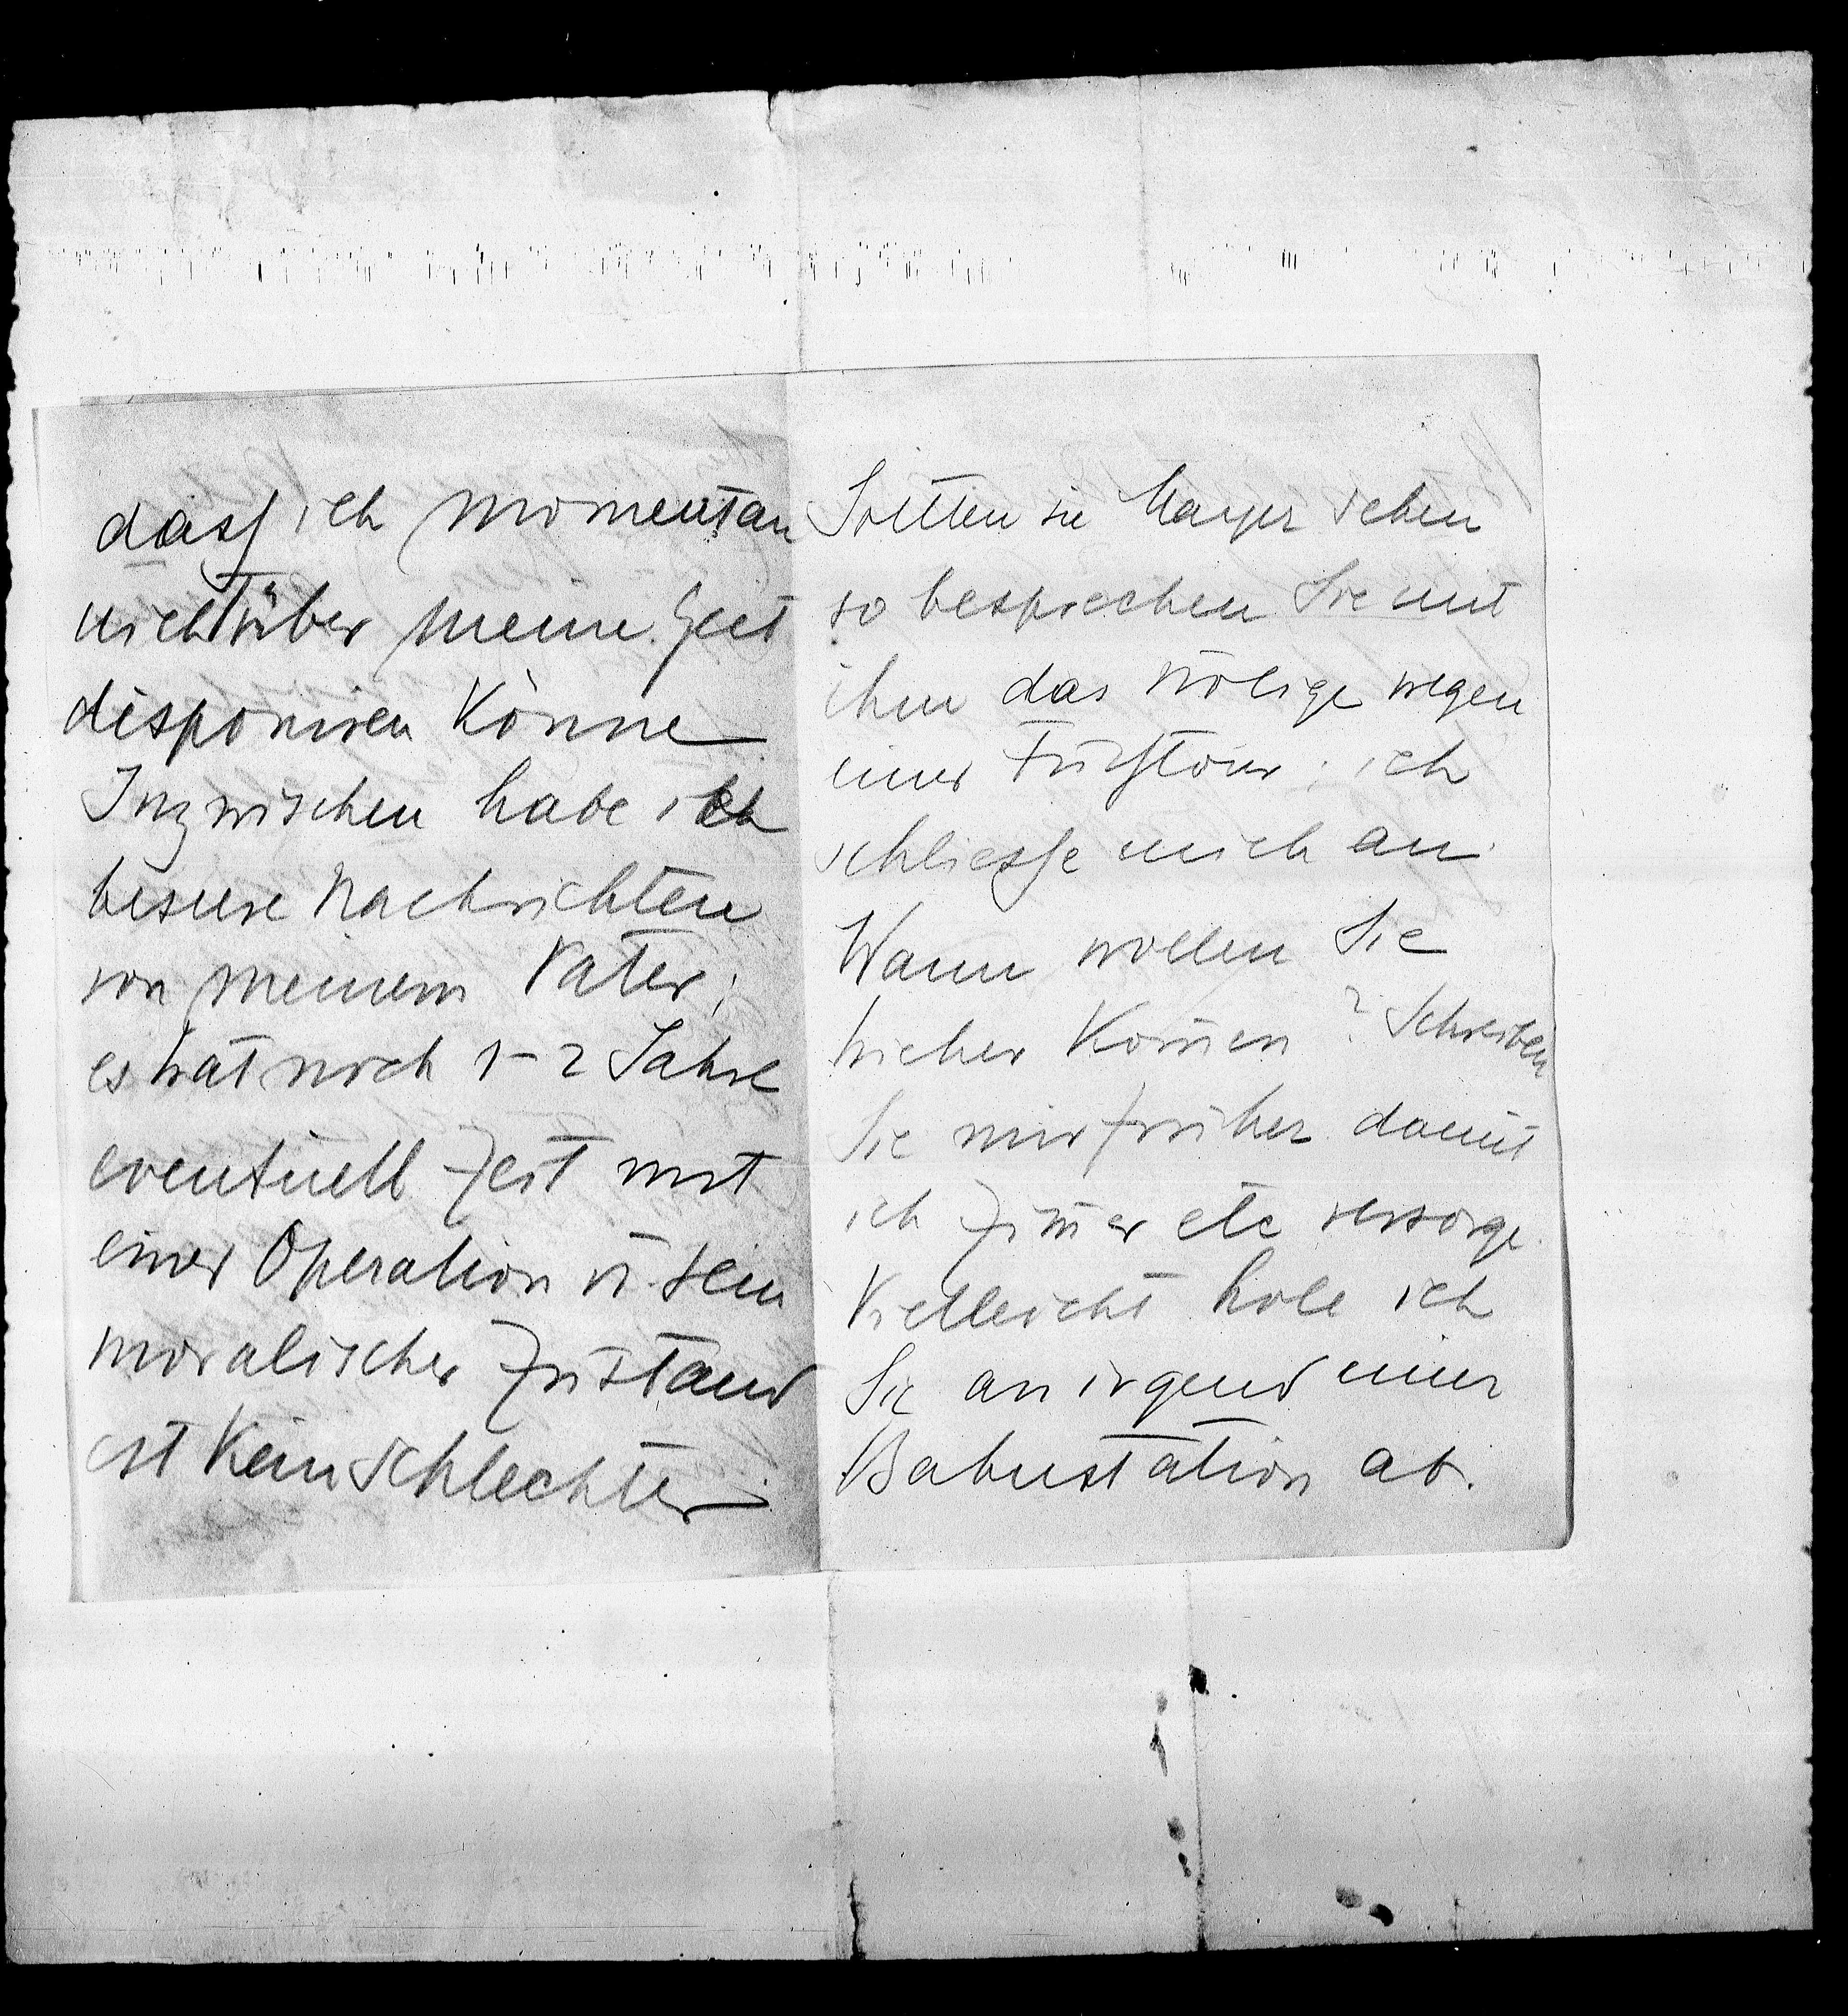 dass ich momentan
nicht über meine Zeit
disponiren könne
Inzwischen habe ich
bessere Nachrichten
von meinem Vater;
es hat noch 1-2 Jahre
eventuell Zeit mit
einer Operation ū. sein
moralischer Zustand
ist kein schlechter
Sollten sie Mayer sehen
so besprechen Sie mit
ihm das nötige wegen
einer Fusstour; ich
schliesse mich an.
Wann wollen Sie
hieher kom̄en? Schreiben
Sie mir früher damit
ich Zim̄er etc versorge.
Vielleicht hole ich
Sie an irgend einer
Bahnstation ab.